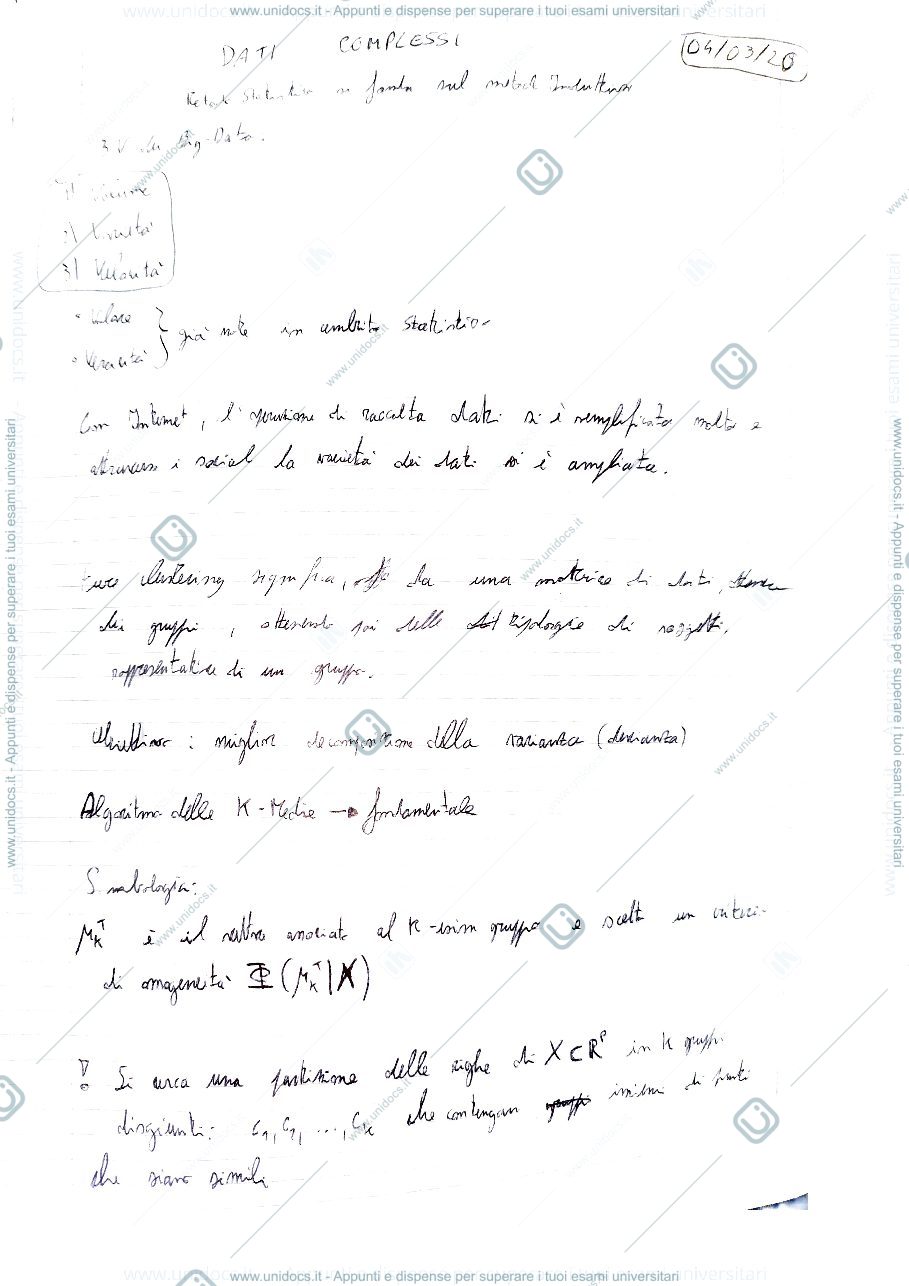 www.unidocs.it - Appunti e dispense per superare i tuoi esami universitari
DATI COMPLESSI
04/03/20
si fonda sul metodo Induttivo
3 V dei Big-Data.
1) Volume
2) Varietà
3) Velocità
• Valore
• Veracità } già note in ambito statistico
Con Internet, l'operazione di raccolta dati si è semplificata molto e
attraverso i social la varietà dei dati si è ampliata.
Fare clustering significa, da una matrice di dati,
dei gruppi, ottenendo poi delle tipologie di soggetti,
rappresentative di un gruppo.
Obiettivo: miglior decomposizione della varianza (devianza)
Algoritmo delle K-Medie → fondamentale
Simbologia:
μ_K^T è il vettore associato al K-esimo gruppo e scelto un criterio
di omogeneità Φ(μ_K^T|X)
! Si cerca una partizione delle righe di X⊂R^P in K gruppi
disgiunti: C1, C2, ..., CK che contengano insiemi di punti
che siano simili
www.unidocs.it - Appunti e dispense per superare i tuoi esami universitari